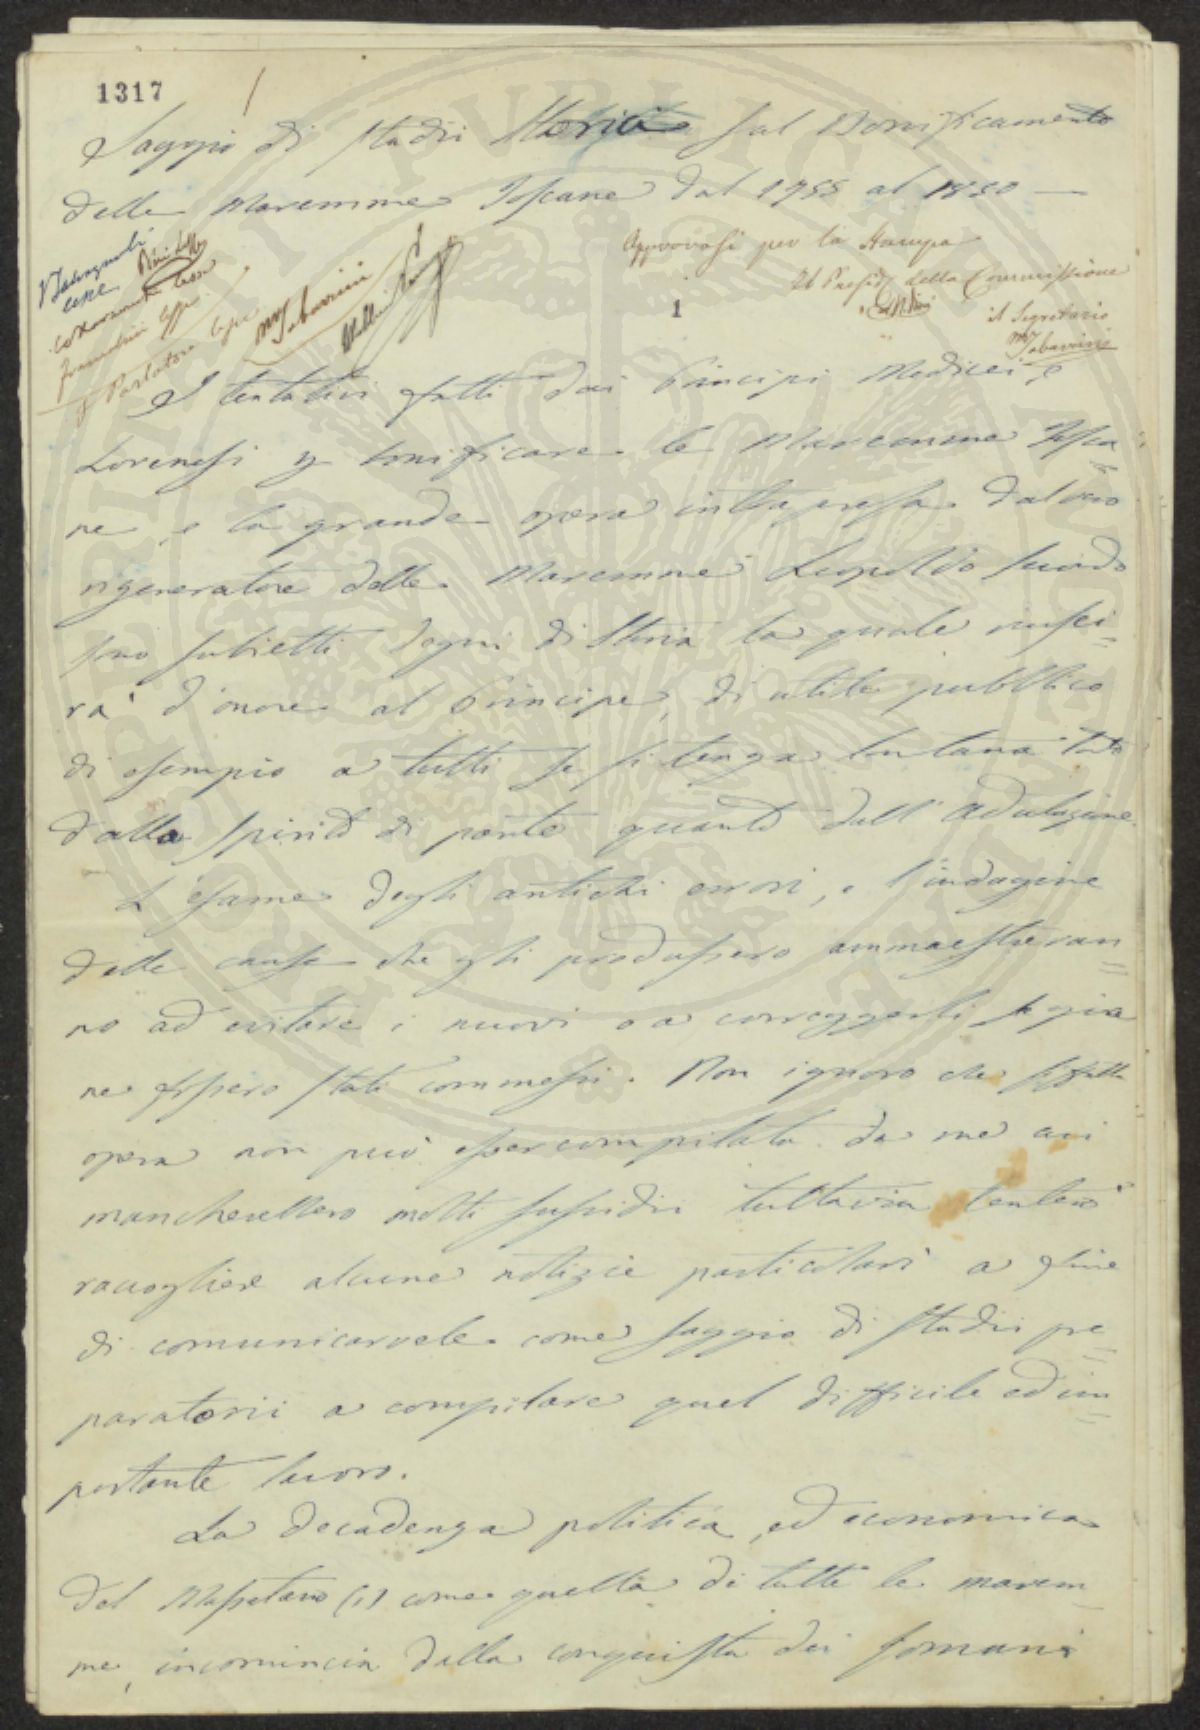 1317
Saggio di studii Storici sul Bonificamento
delle Maremme Toscane dal 1755 al 1850 —
Approvasi per la Stampa
Il Presid. della Commissione
il Segretario
Tabarrini
Tabarrini
1
I tentativi fatti dai Principi Medicei, e
Lorenesi p bonificare le Maremme Tosca=
ne, e la grande opera intrapresa dal vero
rigeneratore delle Maremme Leopoldo secondo
sono subietti degni di Storia la quale riusci=
rà d'onore al Principe, di utile pubblico
di esempio a tutti se si tenga lontana tanto
dallo spirito di parte quanto dall'adulazione.
L'esame degli antichi errori, e l'indagine
delle cause che gli produssero ammaestreran=
no ad evitare i nuovi o a correggerli se giam
ne fossero stati commessi. Non ignoro che siffatta
opera non può esser compilata da me cui
mancherebbero molti sussidii tuttavia tenterò
raccogliere alcune notizie particolari a fine
di comunicarvele come saggio di studii pre=
paratorii a compilare quel difficile ed im=
portante lavoro.
La decadenza politica, ed economica
del Massetano (1) come quella di tutte le marem=
me, incomincia dalla conquista dei Romani